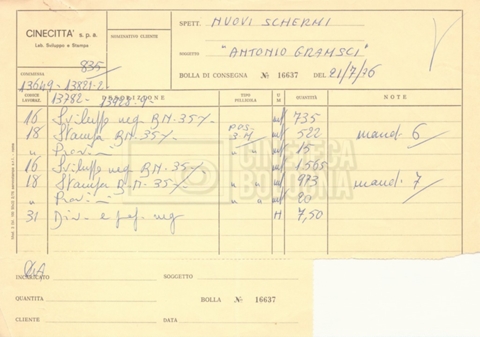 CINECITTA' s.p.a.
Lab. Sviluppo e Stampa
NOMINATIVO CLIENTE
SPETT. NUOVI SCHERMI
SOGGETTO "ANTONIO GRAMSCI"
BOLLA DI CONSEGNA № 16637 DEL 21/7/76
835
COMMESSA
13649-13821-2-
13782- 13928-9-
CODICE LAVORAZ.
TIPO PELLICOLA
U M
QUANTITÀ
NOTE
16 Sviluppo neg BN-35% mt 735
18 Stampa BN-35% POS. 3M mt 522 mand. 6
" Provini " " mt 15
16 Sviluppo neg BN.35% mt 1565
18 Stampa B.N.35% " " mt 973 mand. 7
" Provini " " mt 20
31 Div. e pref. neg H 7,50
CINETECA
BOLOGNA
INCARICATO
SOGGETTO
QUANTITA
BOLLA № 16637
CLIENTE
DATA